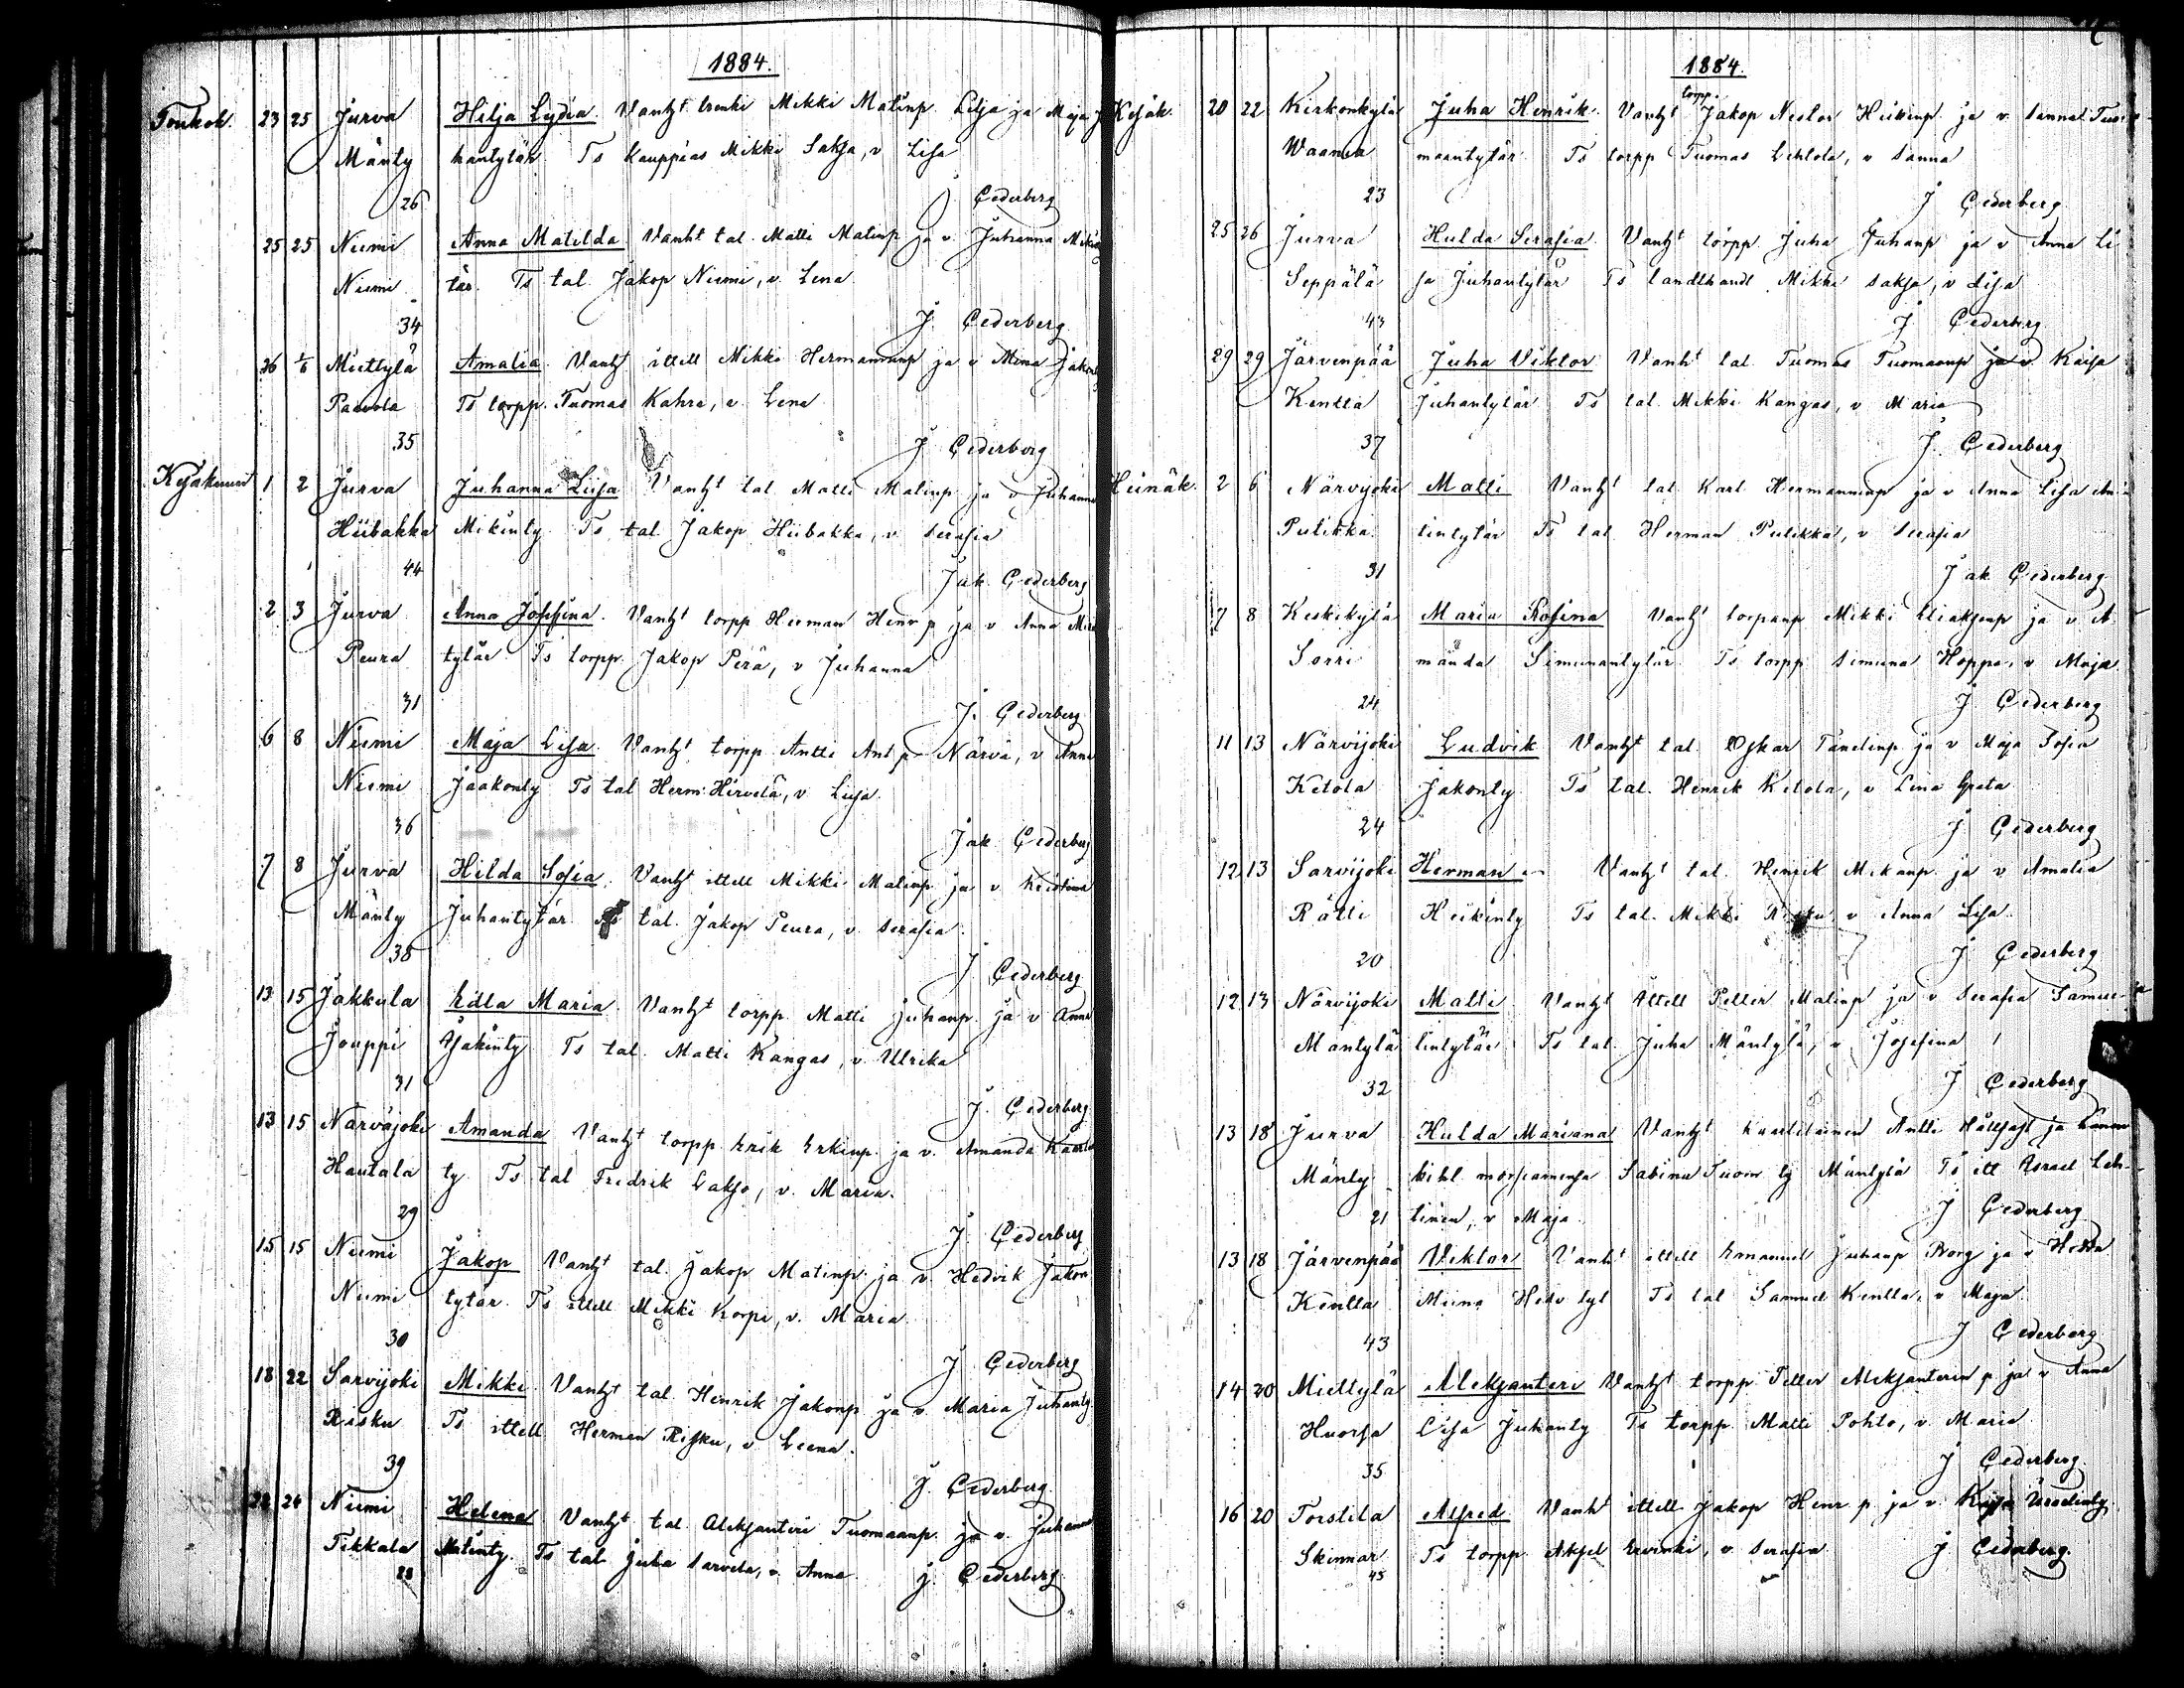 1884.
Toukok. 23 25 Jurva Hilja Lydia. Vanht renki Mikki Matinp. Lilja ja Maja Ju
Mänty hantytär. Ts kauppias Mikki Saksa, v Lisa
26 J Cederberg
25 25 Niemi Anna Matilda Vanht tal. Matti Matinp ja v. Juhanna Mikin
Niemi tär. Ts tal. Jakop Niemi, v. Lena
34 J. Cederberg
26 1/6 Miettylä Amalia. Vanht ittell Mikki Hermanninp ja v Mina Jakonty
Paavola Ts torpp. Tuomas Kahra, v. Lena
35 J Cederberg
Kesäkuun 1 2 Jurva Juhanna Liisa Vanht tal. Matti Matinp ja v Juhanna
Hiibakka Mikinty Ts tal Jakop Hiibakka, v. Serafia
44 Jak. Cederberg
2 3 Jurva Anna Josefina. Vanht torpp Herman Henr p ja v Anna
Peura tytär Ts torpp. Jakop Perä, v Juhanna
31 J. Cederberg
6 8 Niemi Maja Lisa Vanht torpp. Antti Ant p Närvä, v Anna
Niemi Jaakonty Ts tal Herm. Hirvelä, v Liisa.
36 Jak Cederberg
7 8 Jurva Hilda Sofia. Vanht ittell Mikki Matinp ja v Kristina
Mänty Juhantytär Ts tal. Jakop Peura, v. Serafia.
38 J Cederberg
13 15 Jakkula Edla Maria. Vanht torpp. Matti Juhanp. ja v Anna
Jouppi Isakinty Ts tal. Matti Kangas, v. Ullrika
31 J. Cederberg
13 15 Närvijoki Amanda Vanht torpp. Erik Erkinp. ja v. Amanda Kaarlo
Hautala ty Ts tal Fredrik Lakso, v. Maria.
29 J. Cederberg
15 15 Niemi Jakop Vanht tal. Jakop Matinp. ja v. Hedvik Jakon
Niemi tytär. Ts ittell Mikki Korpi, v. Maria
30 J Cederberg
18 22 Sarvijoki Mikki. Vanht tal. Henrik Jakonp ja v. Maria Juhanty
Risku Ts ittell Herman Risku, v. Leena.
39 J. Cederberg
22 24 Niemi Helena Vanht tal. Aleksanteri Tuomaanp. ja v. Juhanna
Tikkala Matinty. Ts tal Juha Sarvela, v. Anna
28 J. Cederberg
1884.
torpp.
Kesäk. 20 22 Kirkonkylä Juha Henrik. Vanht Jakop Nestor Heikinp. ja v Sanna Tuo
Waania maantytär Ts torpp Tuomas Lehtola, v Sanna
23 J Cederberg
25 26 Jurva Hulda Serafia. Vanht torpp. Juha Juhanp ja v Anna Li
Seppälä sa Juhantytär Ts landthandl. Mikki Saksa, v Lisa
43 J Cederberg
29 29 Järvenpää Juha Viktor Vanht tal. Tuomas Tuomaanp ja v. Kaisa
Kentta Juhantytär Ts tal. Mikki Kangas, v Maria
37 J. Cederberg
Heinäk. 2 6 Närvijoki Matti Vanht tal. Karl Hermanninp ja v Anna Lisa
Pulikka tintytär Ts tal. Herman Pulikka, v Serafia
31 Jak Cederberg
7 8 Keskikylä Maria Rosina Vanht torpanp Mikki Eliaksenp ja v. A
Sorri manda Simunantytär Ts torpp Simuna Hoppa, v Maja
24 J. Cederberg
11 13 Närvijoki Ludvik Vanht tal. Oskar Tanelinp ja v Maja Sofia
Ketola Jakonty. Ts tal. Henrik Ketola, v Lena Greta
24 J Cederberg
12 13 Sarvijoki Herman Vanht tal. Henrik Mikanp. ja v Amalia
Rätti Heikinty Ts tal. Mikki v Anna Lisa.
20 J Cederberg
12 13 Närvijoki Matti Vanht ittell Petter Matinp ja v Serafia Samue
Mäntylä lintytär Ts tal. Juha Mäntylä, v Josefina
32 J Cederberg
13 18 Jurva Hulda Mariana Vanht Antti ja
Mänty kihl. morsiamensa Sabina Tuom ty Mäntylä Ts itt Israel Leh-
21 tinen, v Maja. J Cederberg
13 18 Järvenpää Viktor Vanht ittell Emanuel Juhanp Borg ja v Hedda
Kentta Miina Ts tal Samuel Kentta, v Maja.
43 J Cederberg
14 20 Miettylä Aleksanteri Vanht torpp Petter Aleksanterin p ja v Anna
Huorsa Lisa Juhanty Ts torpp. Matti Pohto, v. Maria
35 J Cederberg
16 20 Torstila Alfred Vanht ittell Jakop Henr p. ja v. Kajsa Israelinty
Skinnar Ts torpp. Aksel, v. Serafia J. Cederberg
45